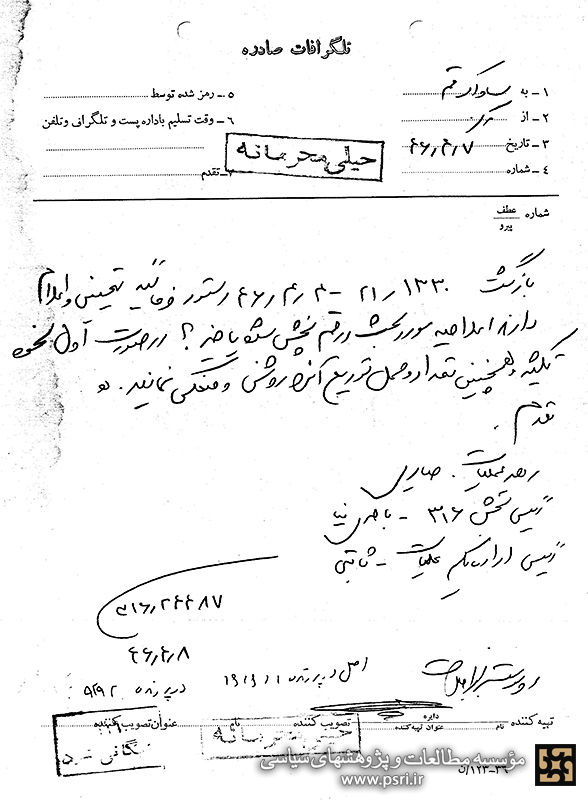 تلگرافات صادره
۱ـ به ساواک قم
۲ـ از
۳ـ تاریخ ۴۶٫۴٫۷
۴ـ شماره
۵ـ رمز شده توسط
۶ـ وقت تسلیم باداره پست و تلگرافی وتلفن
ـ تقدم
خیلی محرمانه
شماره عطف
پیرو
بازگشت ۲۱٫۱۳۳۰ – ۴۶٫۴٫۴ دستور فرمائید تحقیق و اعلام
دارند اعلامیه مورد بحث در قم پخش شده یا خیر؟ در صورت اول نحوه
تکثیر و همچنین تعداد و محل توزیع آنرا روشن و منعکس نمایند.
مقدم
رهبر عملیات . صابری
رئیس بخش ۳۱۶ –
رئیس اداره یکم عملیات – ثابتی
۳۱۶٫۲۴۴۸۷
۴۶٫۴٫۸
اصل در پرونده
در پرونده
تهیه کننده
نام
دایره
عنوان تهیه کننده
تصویب کننده
نام
عنوان تصویب کننده
مؤسسه مطالعات و پژوهشهای سیاسی
www.psri.ir